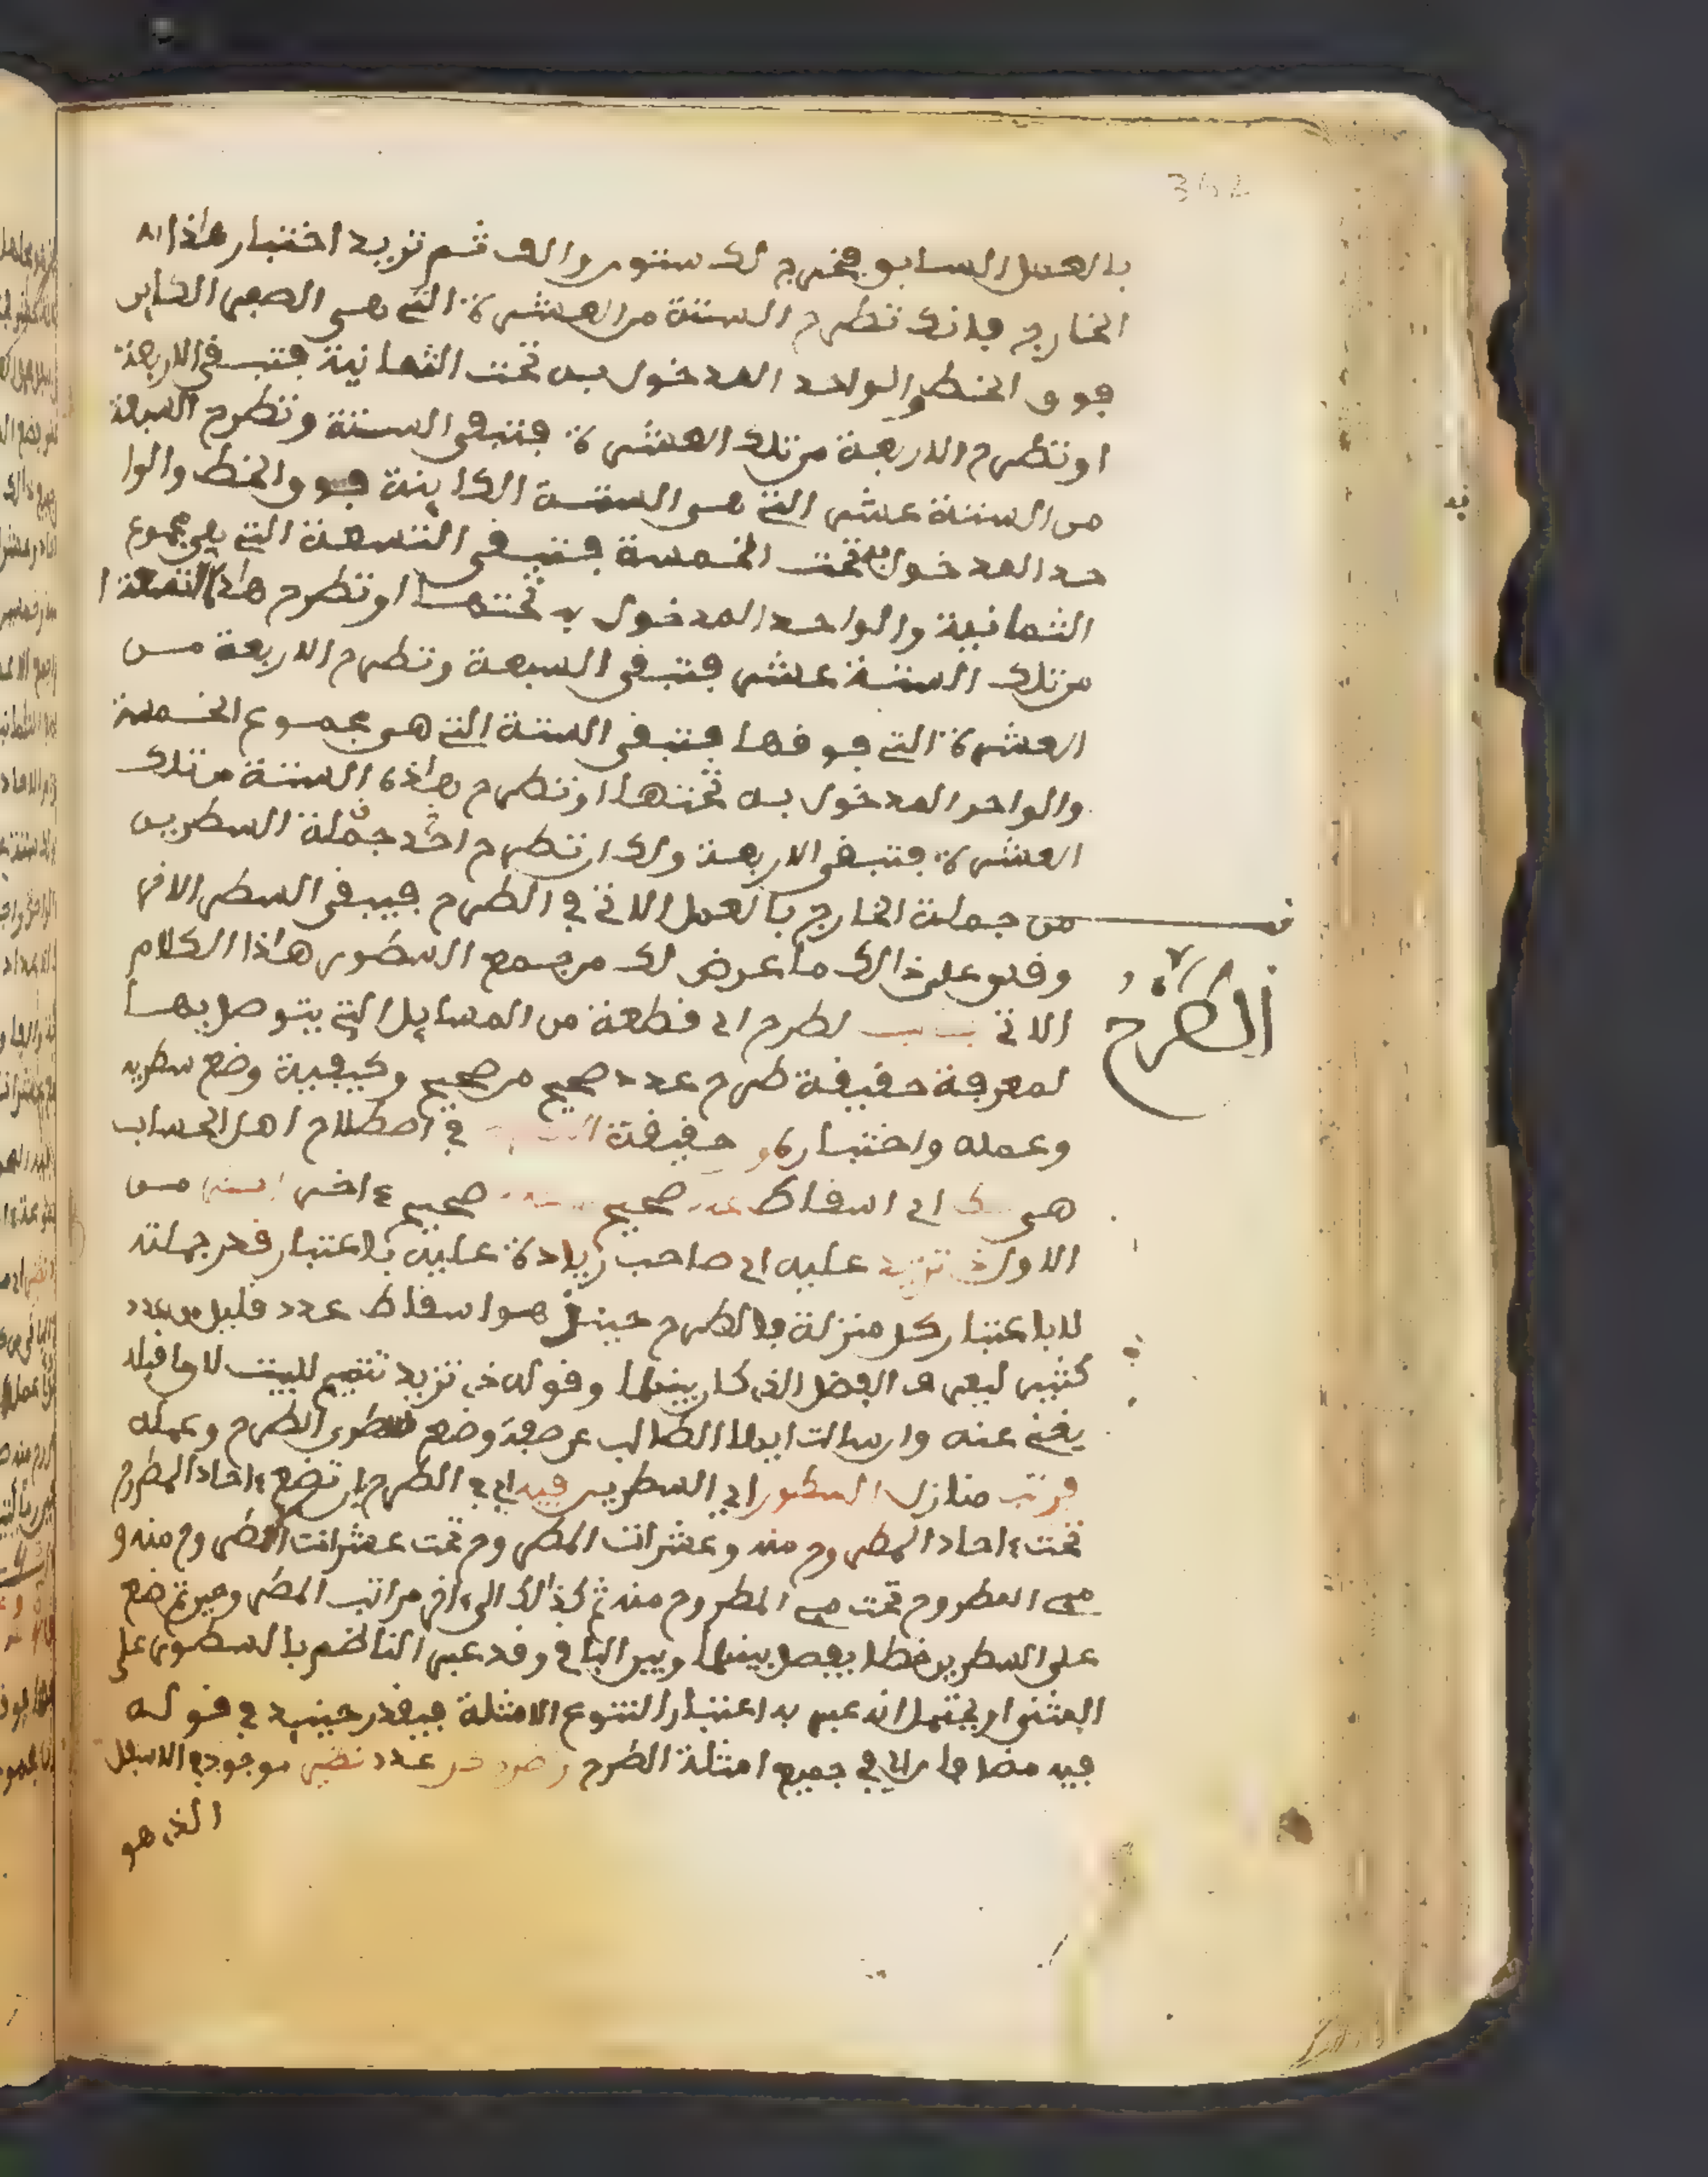 بالعمل السابق فيخرج لك ستون والف ثم تريد اختبار هاذا
الخارج فانك تطرح الستة من العشرة التي هي الصفر الكاين
فوق الخط والواحد المدخول به تحت الثمانية فتبقى الاربعة
او تطرح الاربعة من تلك العشرة فتبقى الستة وتطرح السبعة
من الستة عشر التي هي الستة الكاينة فوق الخط والوا
حد المدخول به تحت الخمسة فتبقى التسعة التي هي مجموع
الثمانية والواحد المدخول به تحتها او تطرح هاذه التسعة
من تلك الستة عشر فتبقى السبعة وتطرح الاربعة من
العشرة التي فوقها فتبقى الستة التي هي مجموع الخمسة
والواحد المدخول به تحتها او تطرح هاذه الستة من تلك
العشرة فتبقى الاربعة ولك ان تطرح احد جملة السطرين
من جملة الخارج بالعمل الاتي في الطرح فيبقى السطر الاخر
وقس على ذالك ما عرض لك من جمع السطور هاذا الكلام
الاتي لطرح اي قطعة من المسايل التي يتوصل بها
الطرح
لمعرفة حقيقة طرح عدد صحيح من صحيح وكيفية وضع سطريه
وعمله واختباره حقيقة في اصطلاح اهل الحساب
هي اي اسقاط عدد صحيح صحيح اخر من
الاول تزيد عليه اي صاحب زيادة عليه باعتبار قدر جملته
لا باعتبار كل منزلة فالطرح حينئذ هو اسقاط عدد قليل من عدد
كثير ليعرف الفضل الذي كان بينهما وقوله تزيد تتميم للبيت لان ما قبله
يغني عنه وان سالت ايها الطالب عن صفة وضع سطور الطرح وعمله
فرتب منازل السطور اي السطرين فيه اي في الطرح بان تضع ءاحاد المطروح
تحت ءاحاد المطروح منه وعشرات المطروح تحت عشرات المطروح منه و
مئي المطروح تحت مئي المطروح منه ثم كذالك الى ءاخر مراتب المطروحين ثم ضع
على السطرين خطا يفصل بينهما وبين الباقي وقد عبر الناظم بالسطور على
المثنى او يحتمل انه عبر به اعتبارا لتنوع الامثلة فيقدر حينئذ في قوله
فيه مضافا اي في جميع امثلة الطرح عدد نظير موجود في الاسفل
الذي هو